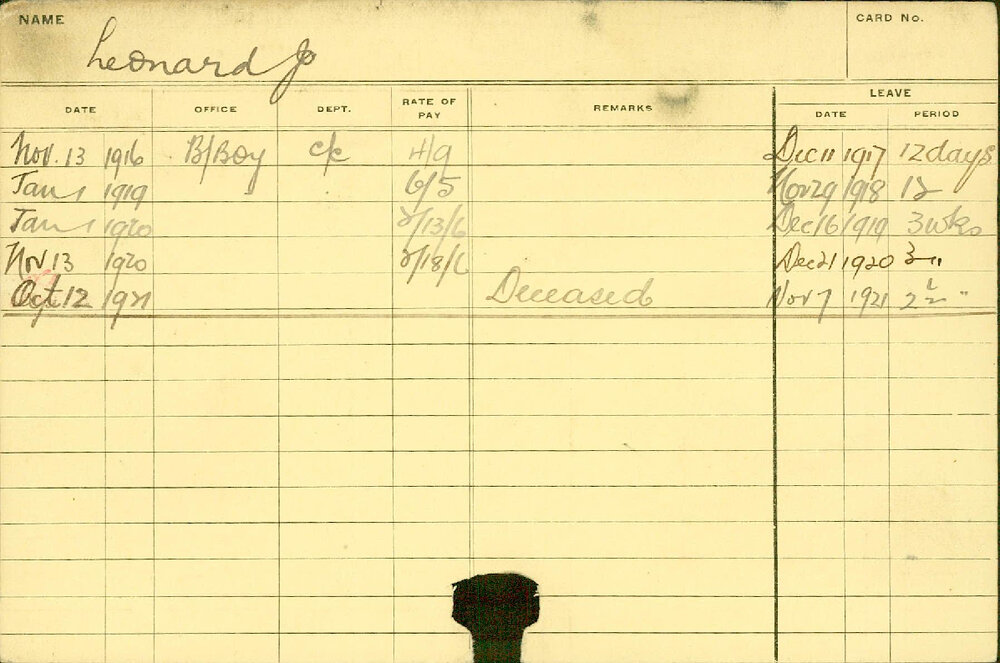 NAME
CARD No.
Leonard J
LEAVE
DATE OFFICE DEPT. RATE OF PAY REMARKS DATE PERIOD
Nov. 13 1916 B/Boy c/c 4/9 Dec 11 1917 12 days
Jan 1 1919 6/5 Nov 29 1918 12
Jan 1 1920 2/13/6 Dec 16 1919 3 wks
Nov 13 1920 2/18/6 Dec 21 1920 3 "
Oct 12 1921 Deceased Nov 7 1921 "